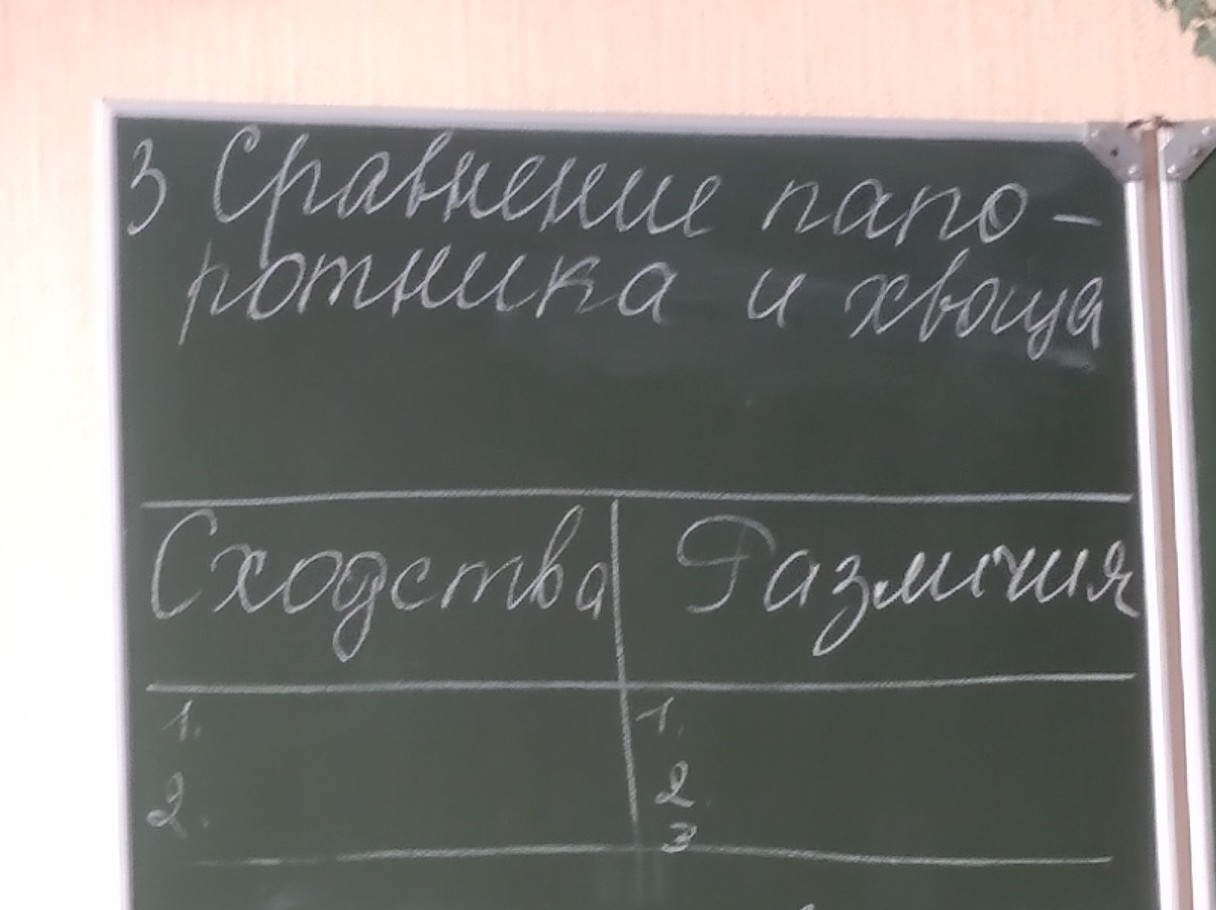 3 Сравнение папо-
ротника и хвоща
Сходства Различия
1. 1.
2. 2.
3